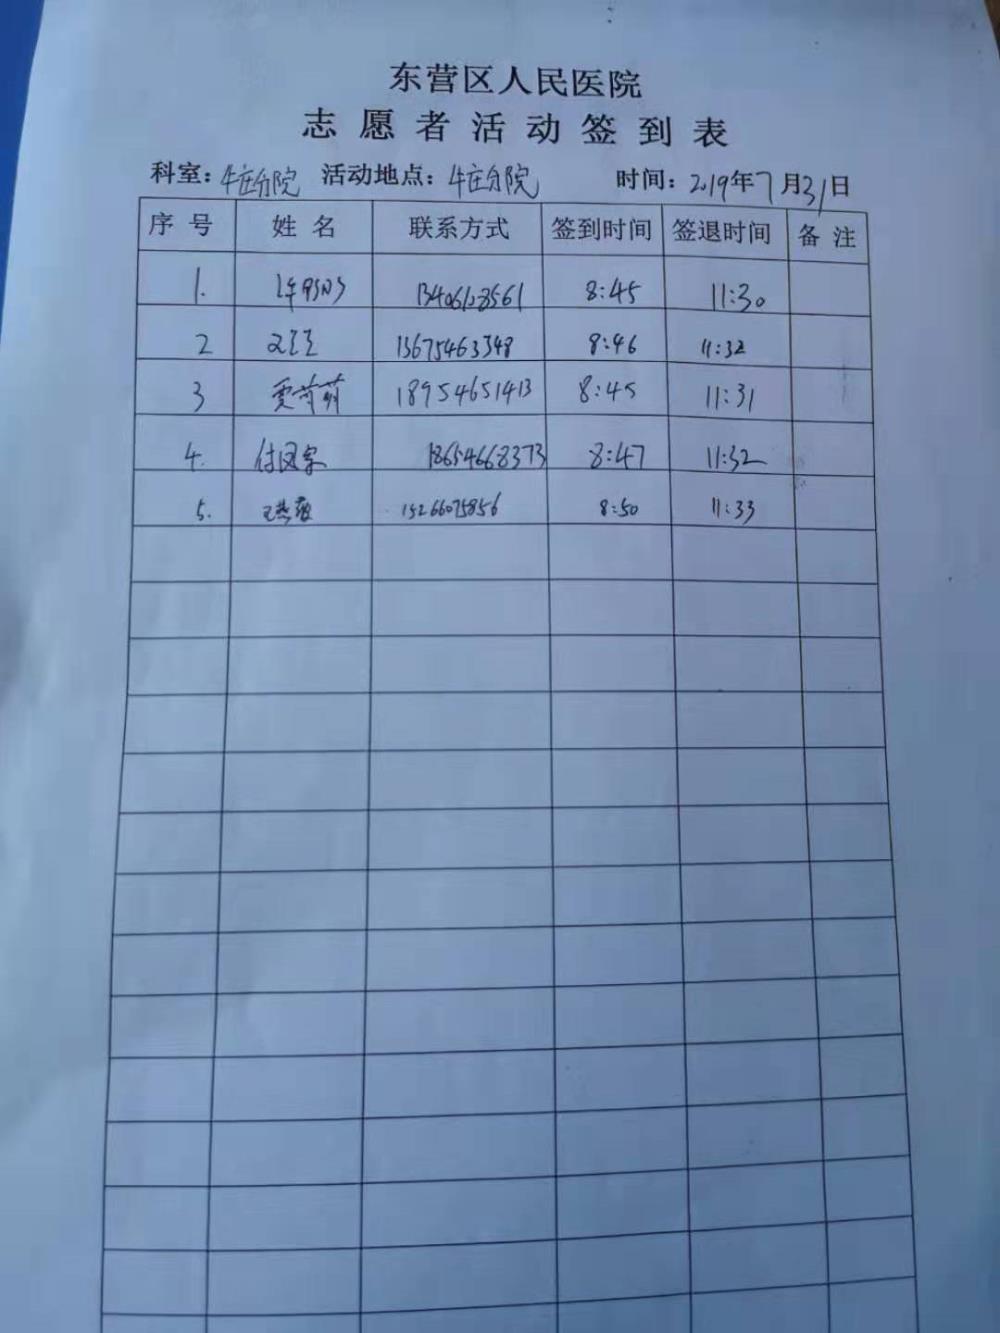 东营区人民医院
志愿者活动签到表
科室：牛庄分院 活动地点：牛庄分院 时间：2019年7月31日
序号 姓名 联系方式 签到时间 签退时间 备注
1. 8:45 11:30
2 13675463348 8:46 11:32
3 贾苛萌 18954651413 8:45 11:31
4. 付国宗 18654668373 8:47 11:32
5. 王燕 15266075856 8:50 11:33